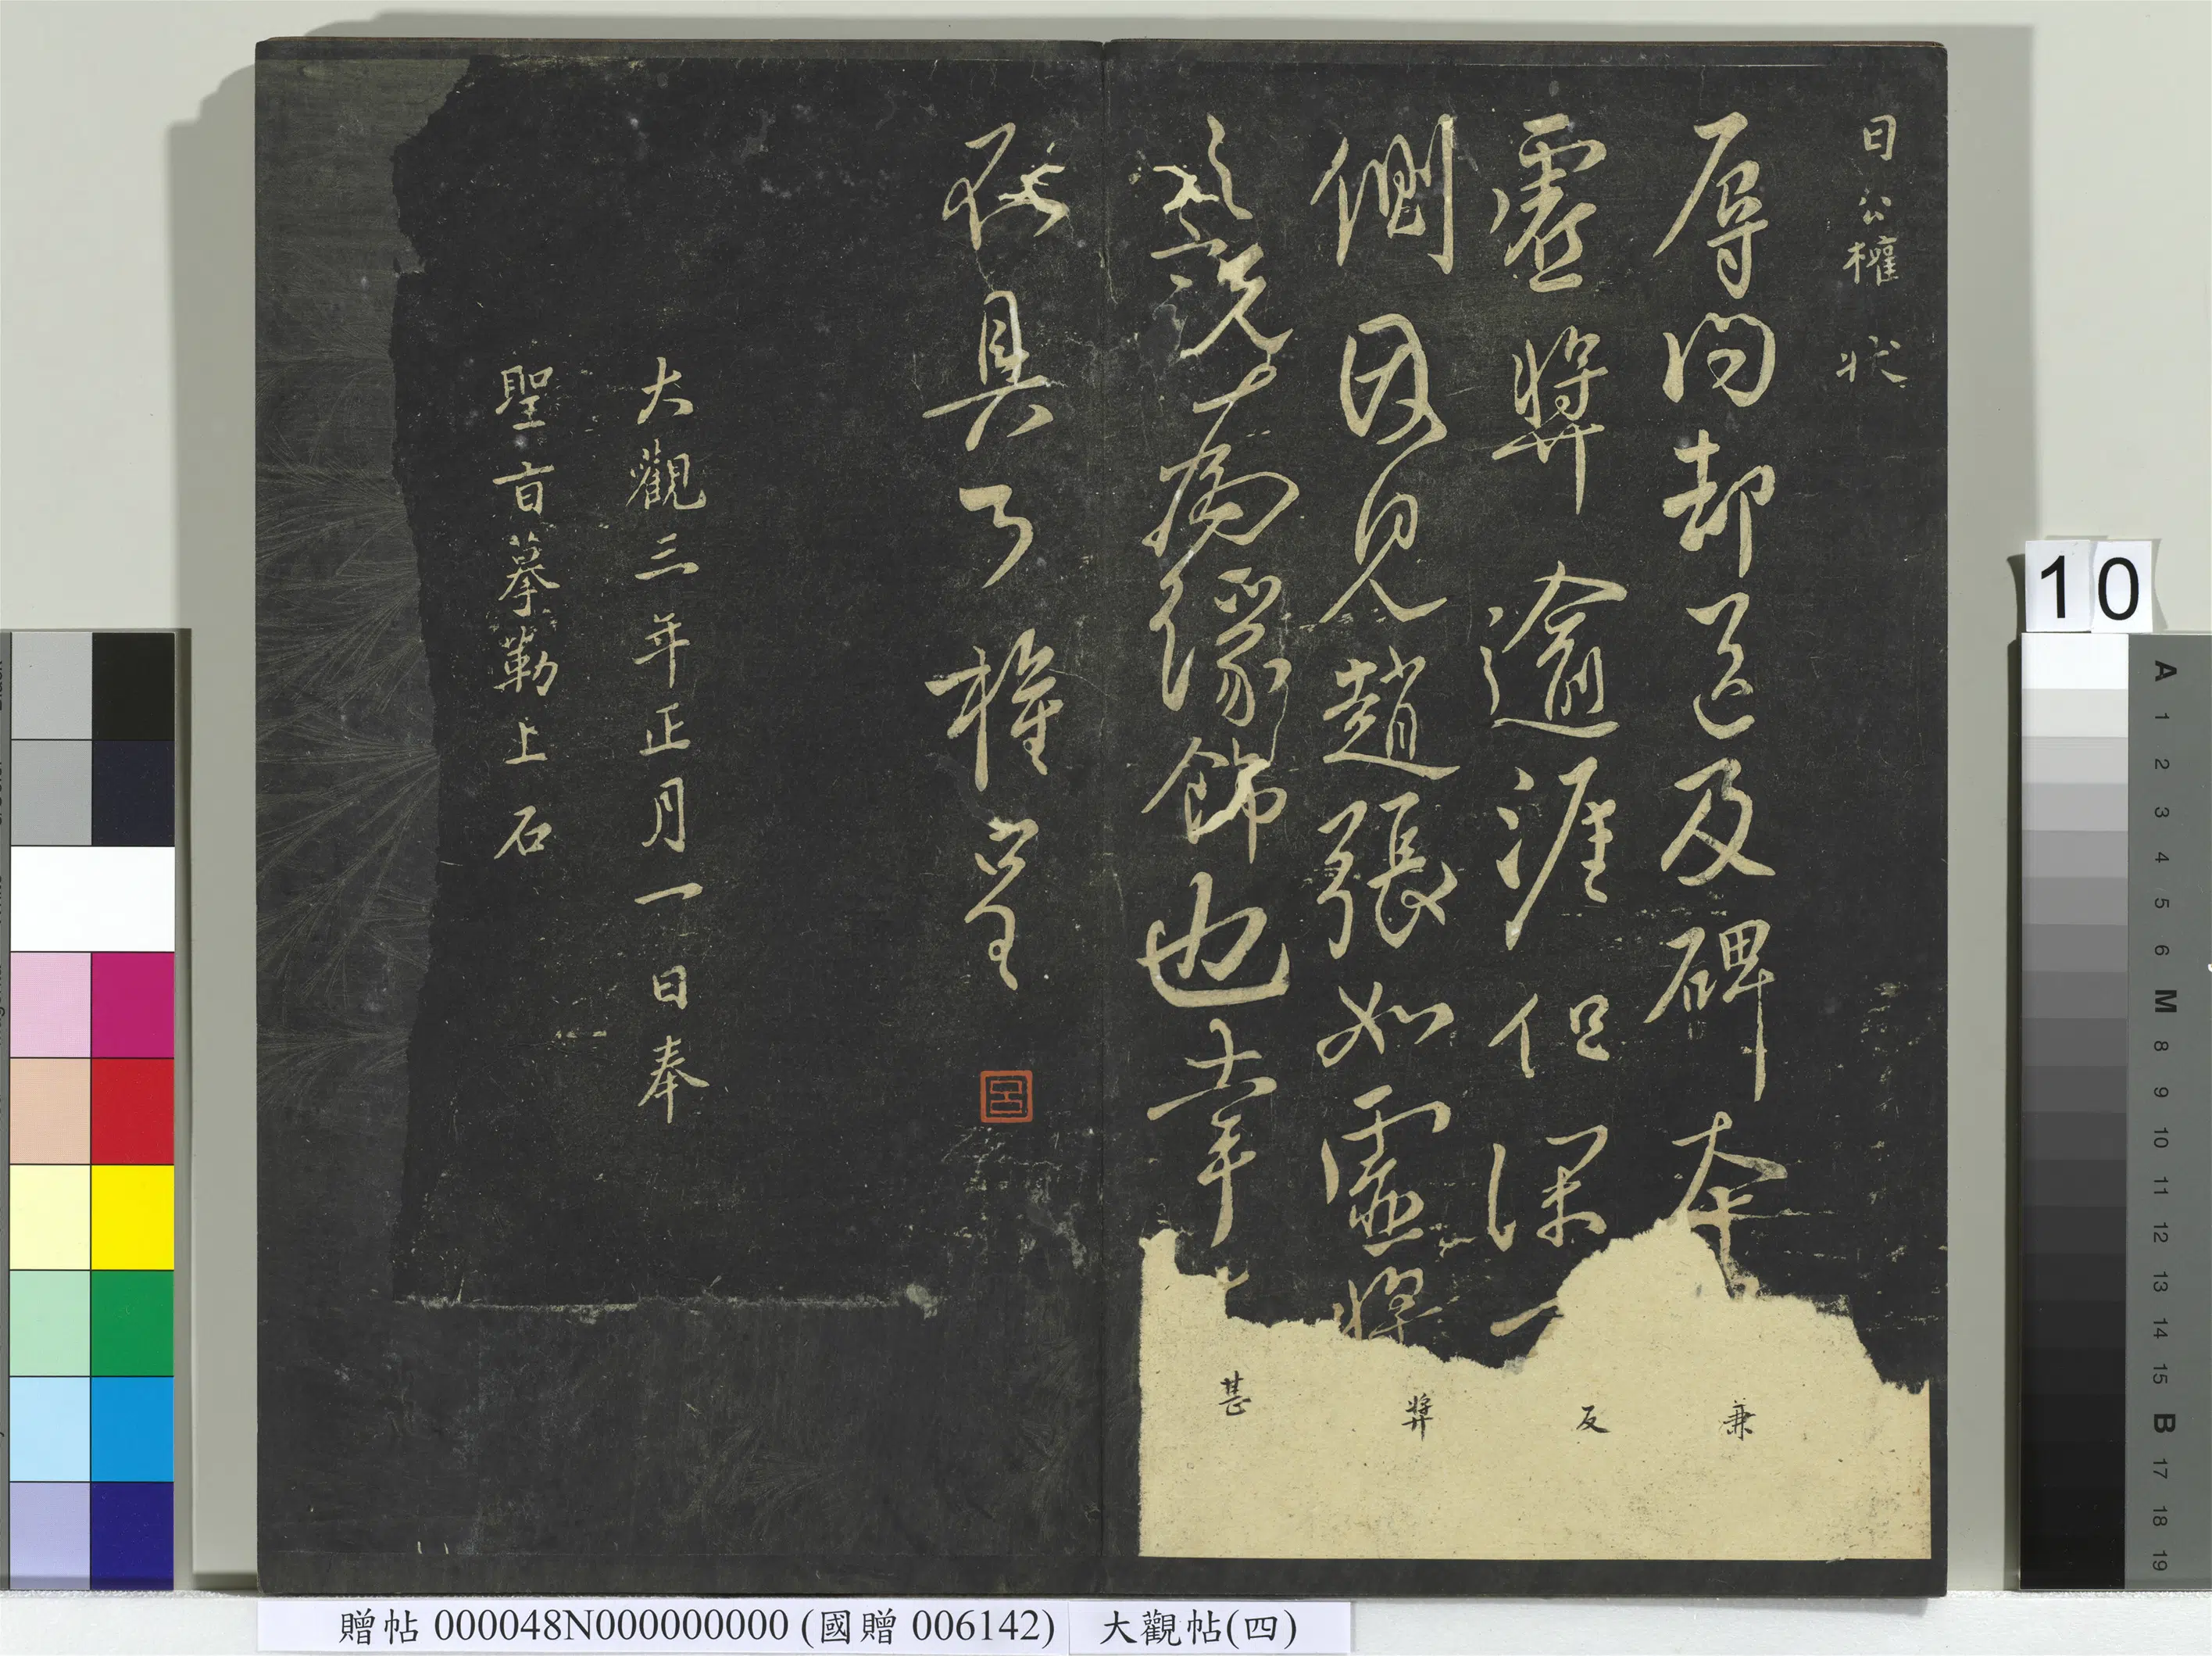 日公權狀
辱問却送及碑本
兼
虛獎逾涯但深
反
側因見趙張如虛獎
獎
說為緣飾也幸
甚
具了權呈
大觀三年正月一日奉
聖旨摹勒上石
10
A 1 2 3 4 5 6 M 8 9 10 11 12 13 14 15 B 17 18 19
贈帖 000048N000000000 (國贈 006142) 大觀帖(四)